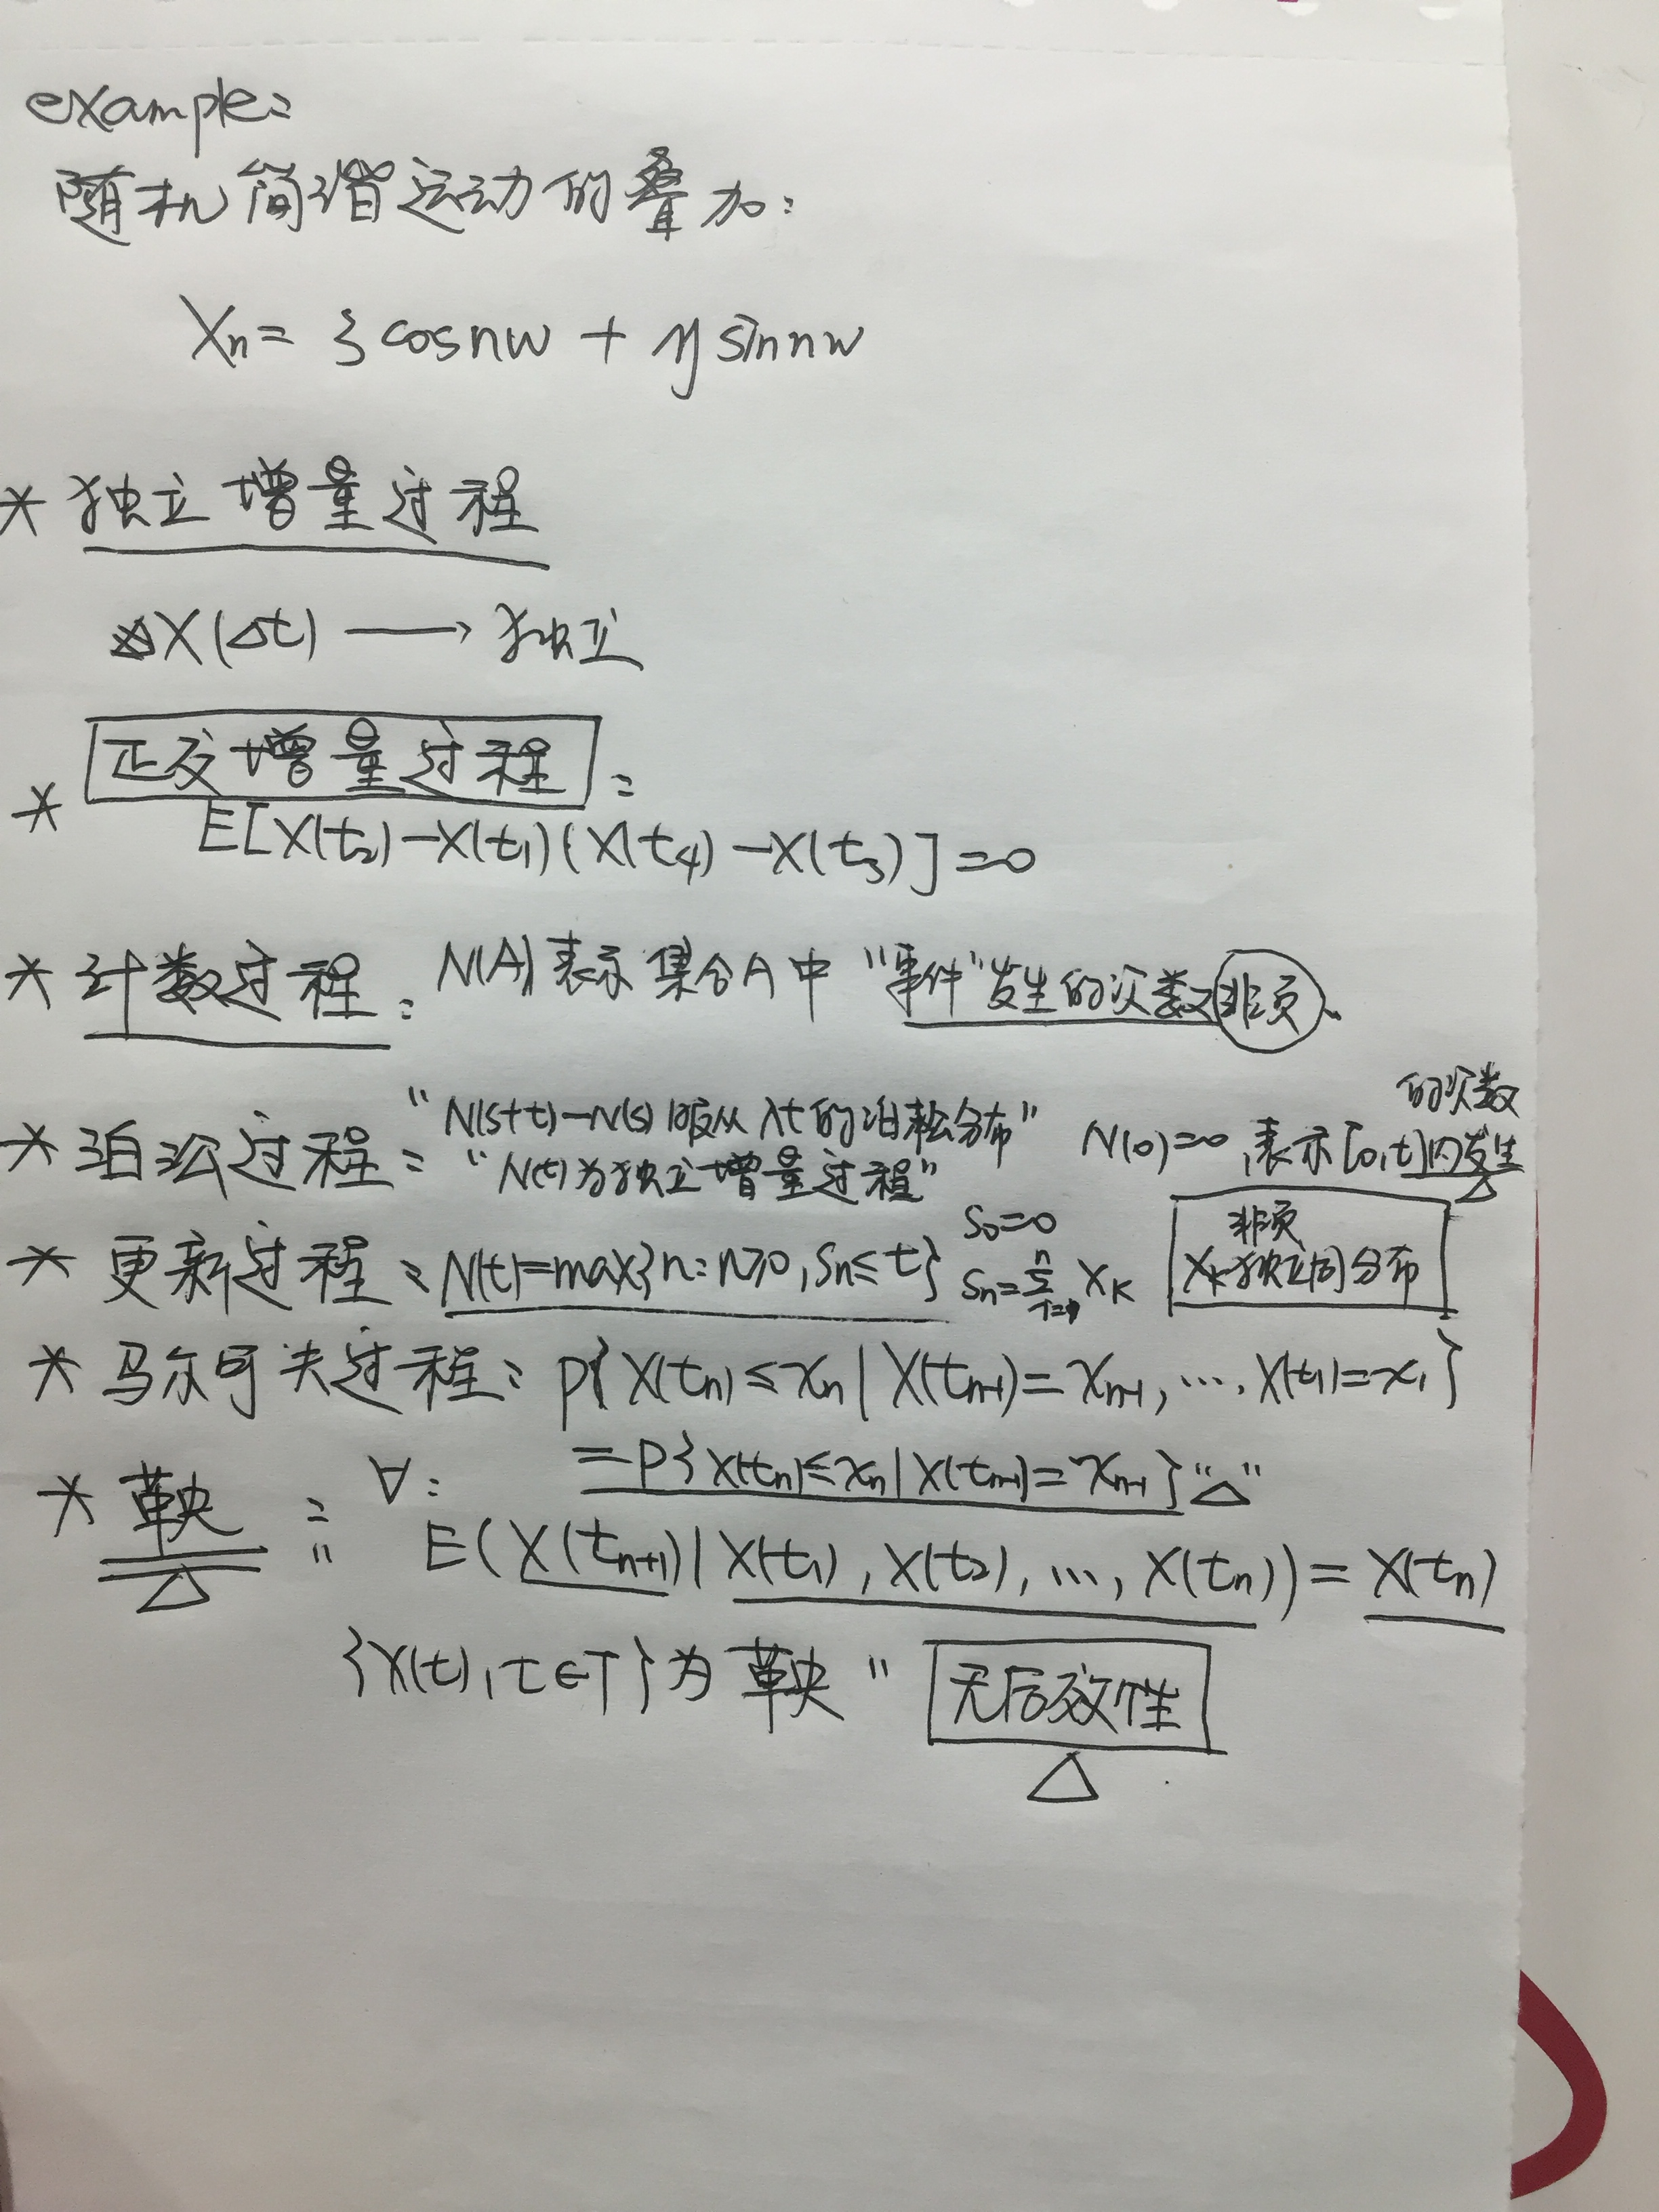 example:
随机简谐运动的叠加:
Xn = ξ cosnw + η sinnw
* 独立增量过程
X(Δt) → 独立
* 正交增量过程:
E[X(t₂)-X(t₁)(X(t₄)-X(t₃)]=0
* 计数过程: N(A)表示集合A中"事件"发生的次数 非负、
* 泊松过程: "N(s+t)-N(s)服从λt的泊松分布" N(0)=0,表示[0,t]内发生的次数
"N(t)为独立增量过程"
* 更新过程: N(t)=max{n:n≥0,Sn≤t} S₀=0
Sn=Σ Xk
非负
Xk独立同分布
* 马尔可夫过程: P{X(tn)≤xn|X(tn-1)=xn-1,…,X(t₁)=x₁}
=P{X(tn)≤xn|X(tn-1)=xn-1}"△"
* 鞅: ∀:
" E(X(tn+1)|X(t₁),X(t₂),…,X(tn))=X(tn)
{X(t),t∈T}为鞅" 无后效性
△